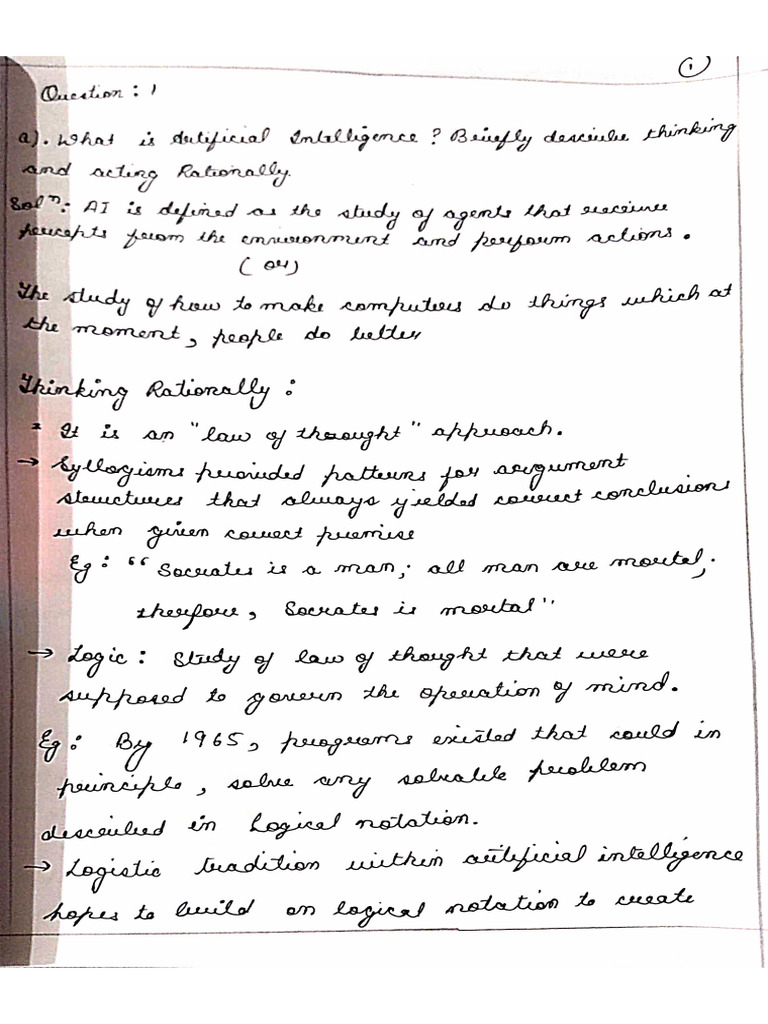 1
Question : 1
a). What is Artificial Intelligence? Briefly describe thinking
and acting Rationally.
Solⁿ: AI is defined as the study of agents that receive
percepts from the environment and perform actions.
(or)
The study of how to make computers do things which at
the moment, people do better
Thinking Rationally :
* It is an "law of thought" approach.
→ Syllogisms provided patterns for argument
structures that always yielded correct conclusions
when given correct premise
Eg : "Socrates is a man; all man are mortal;
therefore, Socrates is mortal"
→ Logic : Study of law of thought that were
supposed to govern the operation of mind.
Eg : By 1965, programs existed that could in
principle, solve any solvable problem
described in Logical notation.
→ Logistic tradition within artificial intelligence
hopes to build on logical notation to create